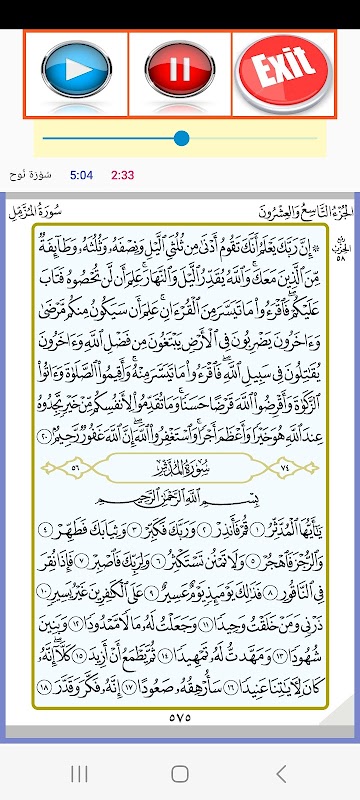 Exit
سورة نوح 5:04 2:33
الجزء التاسع والعشرون سورة المزمل
ربع الحزب ٥٨
۞ إِنَّ رَبَّكَ يَعْلَمُ أَنَّكَ تَقُومُ أَدْنَىٰ مِن ثُلُثَيِ ٱلَّيْلِ وَنِصْفَهُۥ وَثُلُثَهُۥ وَطَآئِفَةٌ
مِّنَ ٱلَّذِينَ مَعَكَۚ وَٱللَّهُ يُقَدِّرُ ٱلَّيْلَ وَٱلنَّهَارَۚ عَلِمَ أَن لَّن تُحْصُوهُ فَتَابَ
عَلَيْكُمْۖ فَٱقْرَءُوا۟ مَا تَيَسَّرَ مِنَ ٱلْقُرْءَانِۚ عَلِمَ أَن سَيَكُونُ مِنكُم مَّرْضَىٰ
وَءَاخَرُونَ يَضْرِبُونَ فِى ٱلْأَرْضِ يَبْتَغُونَ مِن فَضْلِ ٱللَّهِ وَءَاخَرُونَ
يُقَٰتِلُونَ فِى سَبِيلِ ٱللَّهِۖ فَٱقْرَءُوا۟ مَا تَيَسَّرَ مِنْهُۚ وَأَقِيمُوا۟ ٱلصَّلَوٰةَ وَءَاتُوا۟
ٱلزَّكَوٰةَ وَأَقْرِضُوا۟ ٱللَّهَ قَرْضًا حَسَنًاۚ وَمَا تُقَدِّمُوا۟ لِأَنفُسِكُم مِّنْ خَيْرٍ تَجِدُوهُ
عِندَ ٱللَّهِ هُوَ خَيْرًا وَأَعْظَمَ أَجْرًاۚ وَٱسْتَغْفِرُوا۟ ٱللَّهَۖ إِنَّ ٱللَّهَ غَفُورٌ رَّحِيمٌۢ ٢٠
٧٤ سورة المدثر ٥٦
بِسْمِ ٱللَّهِ ٱلرَّحْمَٰنِ ٱلرَّحِيمِ
يَٰٓأَيُّهَا ٱلْمُدَّثِّرُ ١ قُمْ فَأَنذِرْ ٢ وَرَبَّكَ فَكَبِّرْ ٣ وَثِيَابَكَ فَطَهِّرْ ٤
وَٱلرُّجْزَ فَٱهْجُرْ ٥ وَلَا تَمْنُن تَسْتَكْثِرُ ٦ وَلِرَبِّكَ فَٱصْبِرْ ٧ فَإِذَا نُقِرَ
فِى ٱلنَّاقُورِ ٨ فَذَٰلِكَ يَوْمَئِذٍ يَوْمٌ عَسِيرٌ ٩ عَلَى ٱلْكَٰفِرِينَ غَيْرُ يَسِيرٍ ١٠
ذَرْنِى وَمَنْ خَلَقْتُ وَحِيدًا ١١ وَجَعَلْتُ لَهُۥ مَالًا مَّمْدُودًا ١٢ وَبَنِينَ
شُهُودًا ١٣ وَمَهَّدتُّ لَهُۥ تَمْهِيدًا ١٤ ثُمَّ يَطْمَعُ أَنْ أَزِيدَ ١٥ كَلَّآۖ إِنَّهُۥ
كَانَ لِءَايَٰتِنَا عَنِيدًا ١٦ سَأُرْهِقُهُۥ صَعُودًا ١٧ إِنَّهُۥ فَكَّرَ وَقَدَّرَ ١٨
٥٧٥